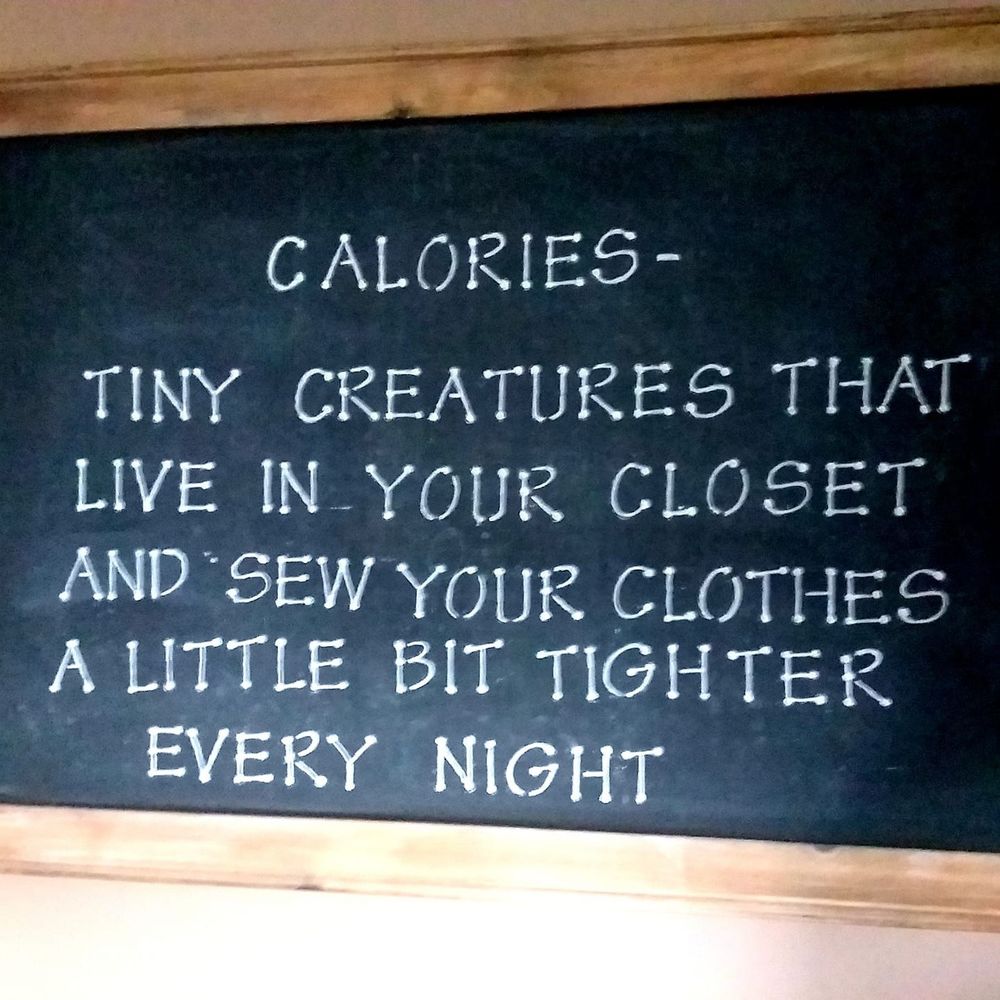 CALORIES-
TINY CREATURES THAT
LIVE IN YOUR CLOSET
AND SEW YOUR CLOTHES
A LITTLE BIT TIGHTER
EVERY NIGHT